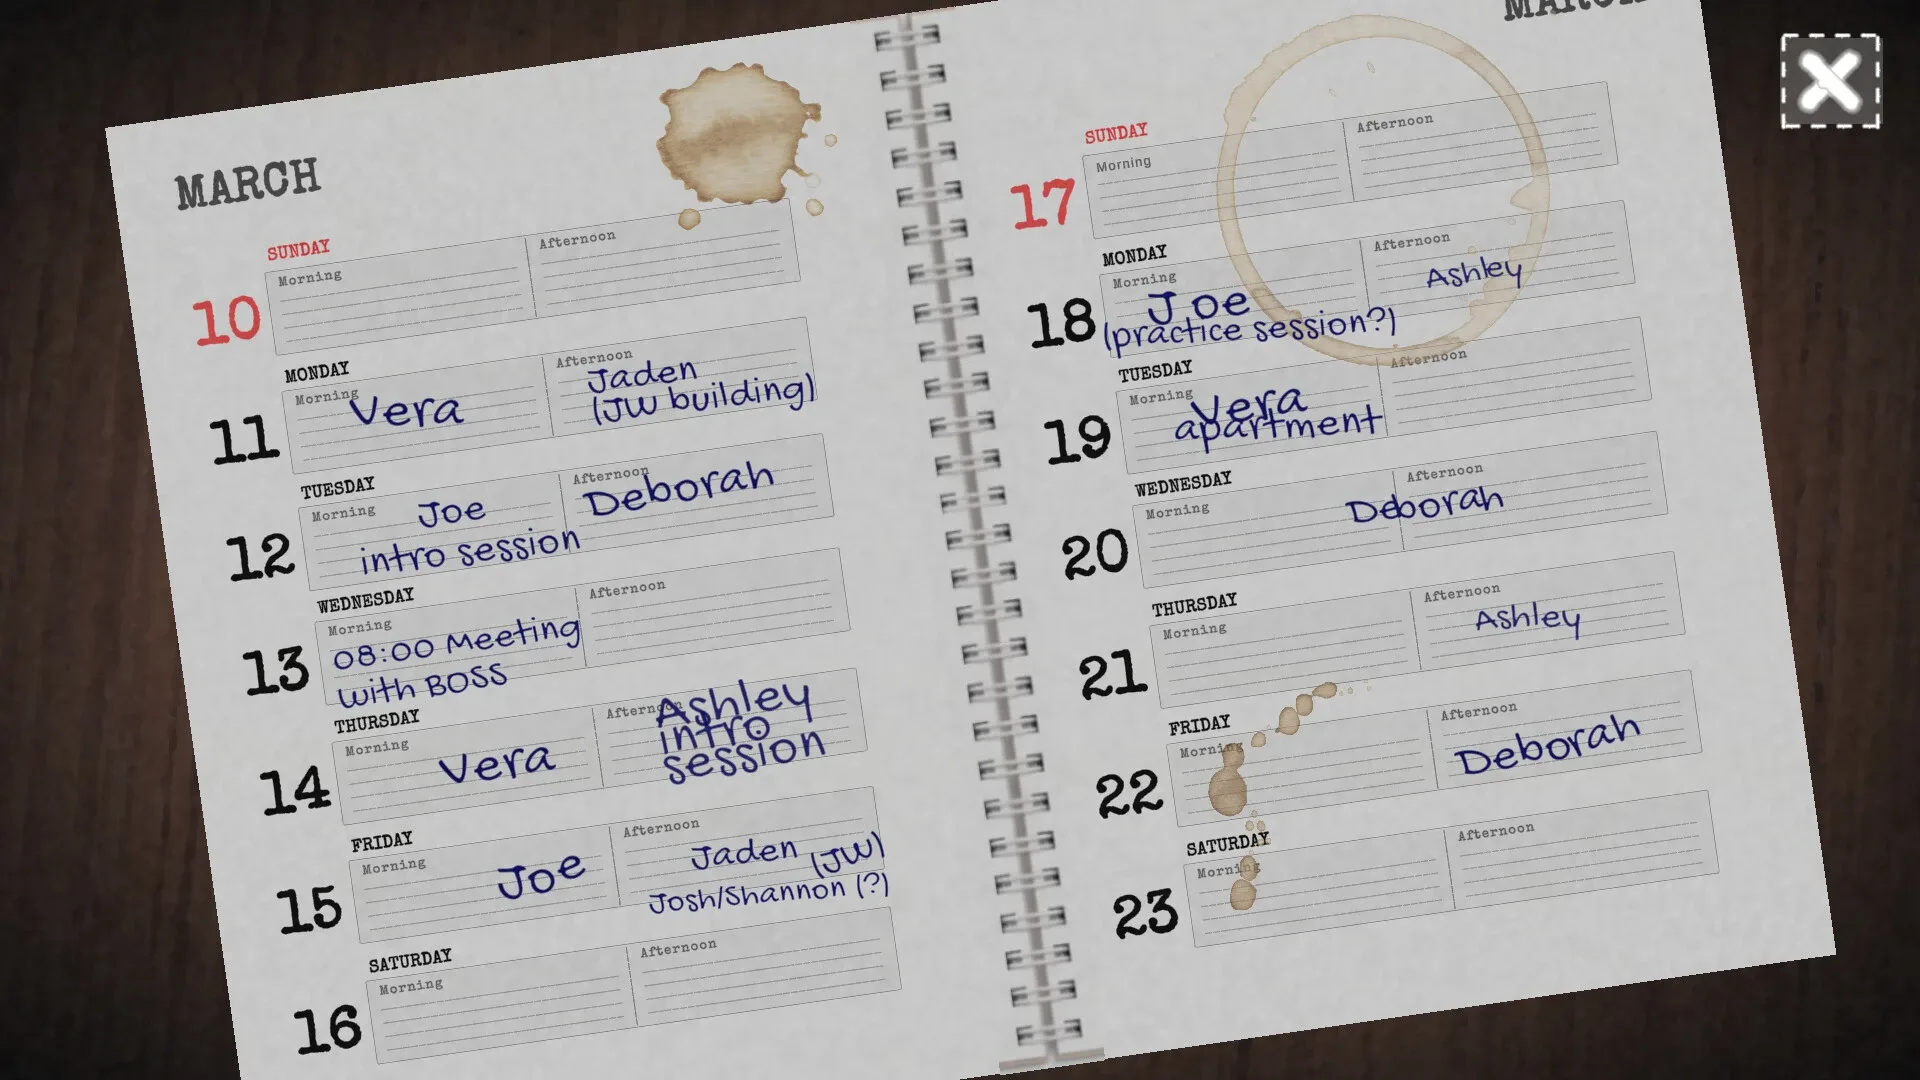 MARCH
SUNDAY
10
Morning
Afternoon
MONDAY
11
Morning
Vera
Afternoon
Jaden
(JW building)
TUESDAY
12
Morning
Joe
intro session
Afternoon
Deborah
WEDNESDAY
13
Morning
08:00 Meeting
with BOSS
Afternoon
THURSDAY
14
Morning
Vera
Afternoon
Ashley
intro
session
FRIDAY
15
Morning
Joe
Afternoon
Jaden (JW)
Josh/Shannon (?)
SATURDAY
16
Morning
Afternoon
MARCH
SUNDAY
17
Morning
Afternoon
MONDAY
18
Morning
Joe
(practice session?)
Afternoon
Ashley
TUESDAY
19
Morning
Vera
apartment
Afternoon
WEDNESDAY
20
Morning
Afternoon
Deborah
THURSDAY
21
Morning
Afternoon
Ashley
FRIDAY
22
Morning
Afternoon
Deborah
SATURDAY
23
Morning
Afternoon